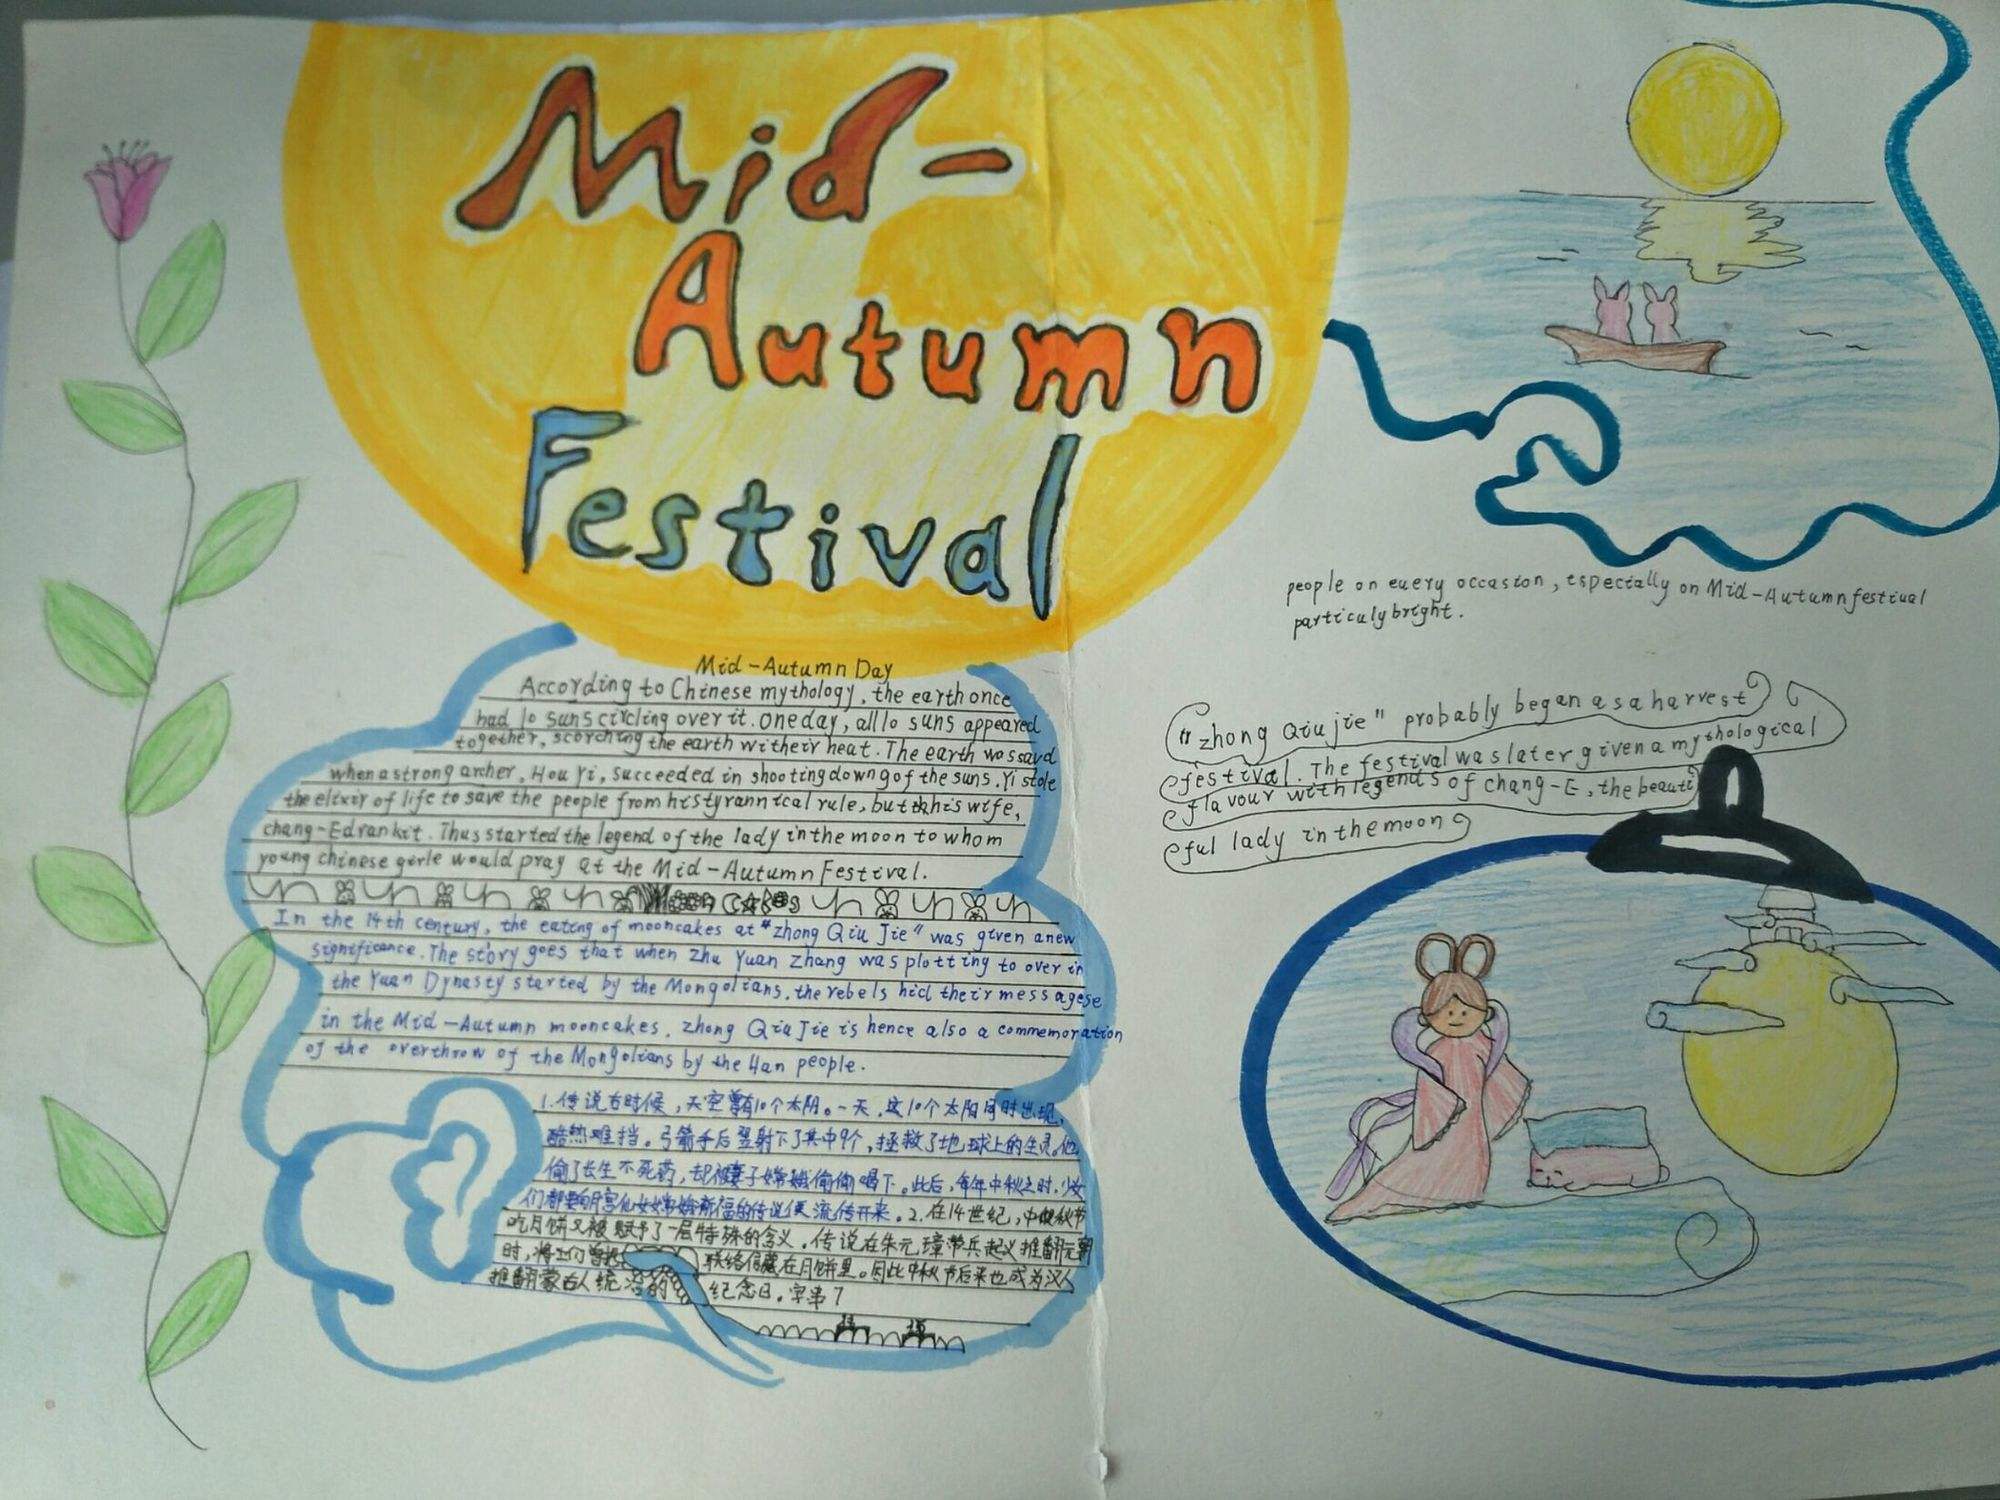 Mid-
Autumn
Festival
Mid-Autumn Day
According to Chinese mythology, the earth once
had 10 suns circling over it. one day, all 10 suns appeared
together, scorching the earth witheir heat. The earth was savd
when a strong archer, Hou Yi, succeeded in shooting down 9 of the suns. Yi stole
the elixir of life to save the people from his tyrannical rule, but his wife,
chang-E drank it. Thus started the legend of the lady in the moon to whom
young chinese girle would pray at the Mid-Autumn Festival.
In the 14th century, the eating of mooncakes at "zhong Qiu Jie" was given anew
significance. The story goes that when zhu Yuan zhang was plotting to over in
the Yuan Dynasty started by the Mongolians, the rebels hid their messagese
in the Mid-Autumn mooncakes. zhong Qiu Jie is hence also a commemoration
of the overthrow of the Mongolians by the Han people.
1.传说古时候,天空曾有10个太阳。一天,这10个太阳同时出现,
酷热难挡。弓箭手后羿射下了其中9个,拯救了地球上的生灵。他
偷了长生不死药,却被妻子嫦娥偷偷喝下。此后,每年中秋之时,少女
们都要向月宫仙女嫦娥祈福的传说便流传开来。2.在14世纪,中秋节
吃月饼又被赋予了一层特殊的含义。传说在朱元璋带兵起义推翻元朝
时,将士们曾把 联络信藏在月饼里。因此中秋节后来也成为汉人
推翻蒙古人统治的 纪念日。字串7
people on euery occasion, especially on Mid-Autumn festiual
particuly bright.
"zhong Qiu jie" probably began as a harvest
festival. The festival was later given a mythological
flavour with legends of chang-E, the beauti
ful lady in the moon